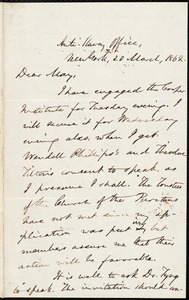 Anti-Slavery Office,
New York, 20 March, 1862.
Dear May,
I have engaged the Cooper
Institute for Tuesday evening. I
will secure it for Wednesday
evening also, when I get
Wendell Phillips's and Theodore
Tilton's consent to speak, as
I presume I shall. The Trustees
of the Church of the Puritans
have not met since my ap-
plication was put in, but
members assure me that their
action will be favorable.
It is well to ask Dr. Tyng
to speak. The invitation should